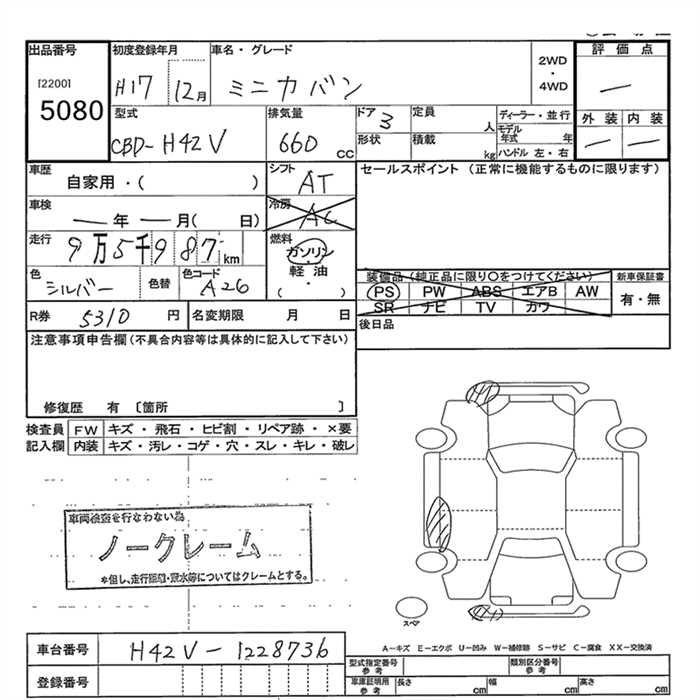 出品番号 初度登録年月 車名・グレード 2WD・4WD 評価点
[2200] H17 12月 ミニカバン —
5080
型式 排気量 ドア 定員 ディーラー・並行 外装 内装
CBD-H42V 660 CC 3 人 モデル年式 年 — —
形状 積載 kg ハンドル 左・右
車歴 シフト セールスポイント (正常に機能するものに限ります)
自家用・( ) AT
車検 冷房
—年—月( 日) AC
走行 燃料
9万5千987km ガソリン・軽油・( )
色 色替 色コード 装備品(純正品に限り〇をつけてください) 新車保証書
シルバー A26 PS PW ABS エアB AW 有・無
SR ナビ TV カワ
R券 5310 円 名変期限 月 日 後日品
注意事項申告欄(不具合内容等は具体的に記入して下さい)
修復歴 有 〔箇所 〕
検査員 FW キズ・飛石・ヒビ割・リペア跡・×要
記入欄 内装 キズ・汚レ・コゲ・穴・スレ・キレ・破レ
車両検査を行なわない為
ノークレーム
*但し、走行距離・冠水等についてはクレームとする。
スペア
A−キズ E−エクボ U−凹み W−補修跡 S−サビ C−腐食 XX−交換済
車台番号 H42V-1228736 型式指定番号 参考 類別区分番号 参考
登録番号 車庫証明用 参考 長さ cm 幅 cm 高さ cm